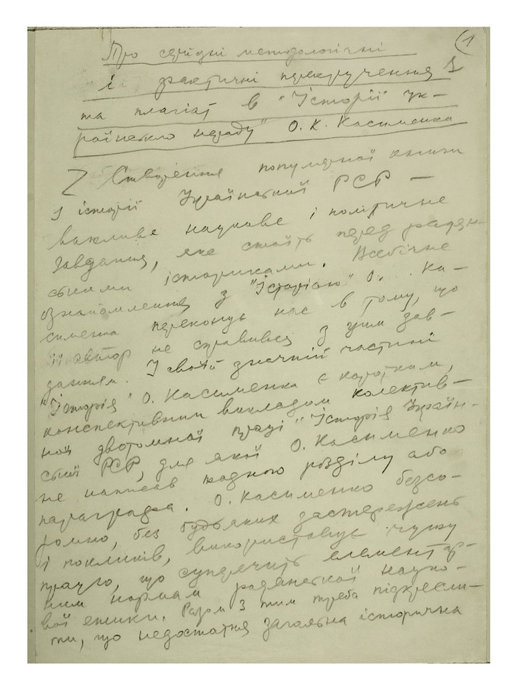 1
Про серйозні методологічні
і фактичні перекручення
та плагіат в "Історії ук-
раїнського народу" О. К. Касименка
Створення популярної книги
з історії Української РСР —
важливе наукове і політичне
завдання, яке стоїть перед радян-
ськими істориками. Всебічне
ознайомлення з "Історією" О. Ка-
сименка переконує нас в тому, що
автор не справився з цим зав-
данням. У своїй значній частині
"Історія" О. Касименка є коротким,
конспективним викладом колектив-
ної двотомної праці "Історія Україн-
ської РСР", для якої О. Касименко
не написав жодного розділу або
параграфа. О. Касименко безсо-
ромно, без будь-яких застережень
і покликів, використовує чужу
працю, що суперечить елементар-
ним нормам радянської науко-
вої етики. Разом з тим треба підкресли-
ти, що недостатня загальна історична